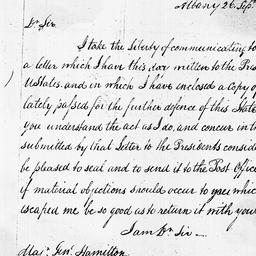 Albany 26 Sept.
Dr Sir
I take the liberty of communicating to
a letter which I have this day written to the Pres
UStates, and in which I have enclosed a Copy o
lately passed for the further defence of this State
you understand the act as I do, and concur in t
submitted by that Letter to the Presidents consid
be pleased to seal and to send it to the Post Offic
if material objections should occur to you which
escaped me be so good as to return it with your
I am Dr Sir
Majr. Genl. Hamilton